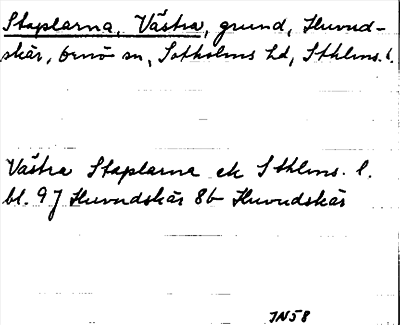 Staplarna, Västra, grund, Huvud-
skär, Ornö sn, Sotholms hd, Sthlms l.
Västra Staplarna ek Sthlms. l.
bl. 9J Huvudskär 8b Huvudskär
JN58